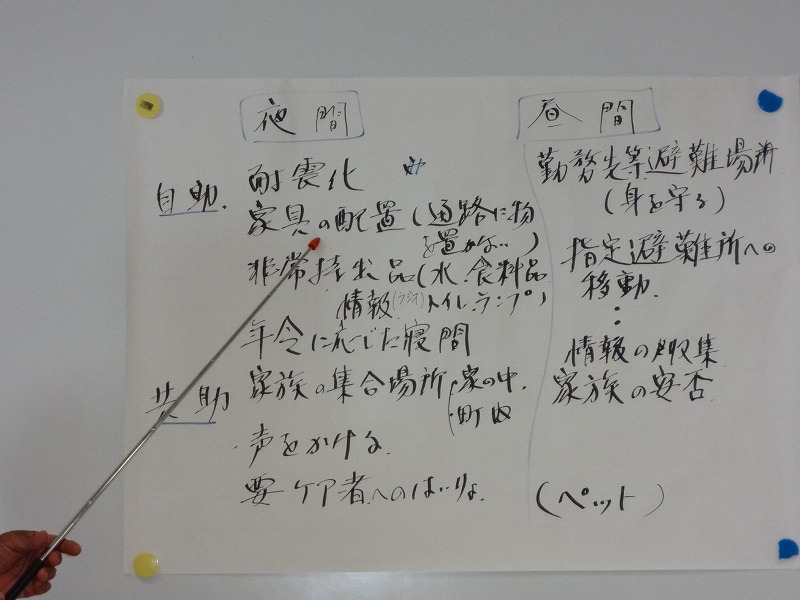 夜間
自助.
耐震化
家具の配置(通路に物
を置かない)
非常持出品(水.食料品
情報(ラジオ)トイレ.ランプ)
年令に応じた寝間
共助
家族の集合場所(家の中.
町内
・声をかける
要ケア者へのはいりょ.
昼間
勤務先等避難場所
(身を守る)
指定避難所への
移動.
:
情報の収集
家族の安否
(ペット)